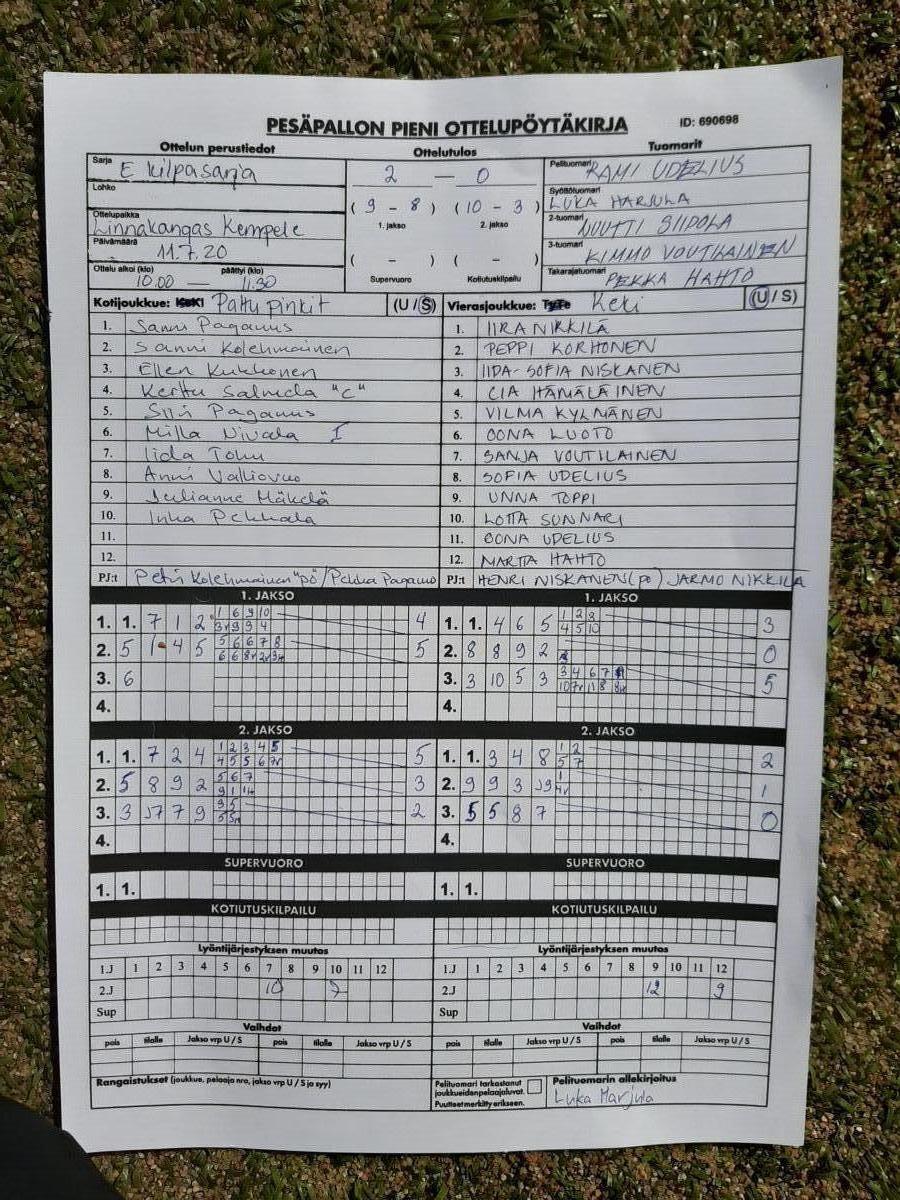 PESÄPALLON PIENI OTTELUPÖYTÄKIRJA
ID: 690698
Ottelun perustiedot
Ottelutulos
Tuomarit
Sarja E kilpasarja
Lohko
Ottelupaikka Linnakangas Kempele
Päivämäärä 11.7.20
Ottelu alkoi (klo) päättyi (klo)
10.00 — 11.30
2 — 0
( 9 - 8 ) ( 10 - 3 )
1. jakso 2. jakso
( - ) ( - )
Supervuoro Kotiutuskilpailu
Pelituomari RAMI UDELIUS
Syöttötuomari LUKA HARJULA
2-tuomari NUUTTI SIIPOLA
3-tuomari KIMMO VOUTILAINEN
Takarajatuomari PEKKA HAHTO
Kotijoukkue: Pattupinkit (U / S)
1. Sanni Paganus
2. Sanni Kolehmainen
3. Ellen Kukkonen
4. Kerttu Salmela "C"
5. Siiri Paganus
6. Milla Nivala I
7. Iida
8. Anni
9. Julianne Mäkelä
10. Inka Pekkala
11.
12.
PJ:t Petri Kolehmainen "pö" / Pekka Paganus
Vierasjoukkue: Keki (U / S)
1. IIRA NIKKILÄ
2. PEPPI KORHONEN
3. IIDA-SOFIA NISKANEN
4. CIA HÄMÄLÄINEN
5. VILMA KYLMÄNEN
6. OONA LUOTO
7. SANJA VOUTILAINEN
8. SOFIA UDELIUS
9. UNNA TOPPI
10. LOTTA SUNNARI
11. OONA UDELIUS
12. MARTTA HAHTO
PJ:t HENRI NISKANEN (pö) JARMO NIKKILÄ
1. JAKSO
1. 1. 7 1 2 1 6 9 10 4
3v 9 9 4
2. 5 1 4 5 5 6 6 7 8 5
3. 6
4.
1. JAKSO
1. 1. 4 6 5 1 2 3 3
4 5 10
2. 8 8 9 2 0
3. 3 10 5 3 3 4 6 7 5
4.
2. JAKSO
1. 1. 7 2 4 1 2 3 4 5 5
4 5 5 6 7v
2. 5 8 9 2 5 6 7 3
3. 3 J7 7 9 9 5 2
4.
2. JAKSO
1. 1. 3 4 8 1 2 2
5 7
2. 9 9 3 J9 1 1
4v
3. 5 5 8 7 0
4.
SUPERVUORO
1. 1.
SUPERVUORO
1. 1.
KOTIUTUSKILPAILU
KOTIUTUSKILPAILU
Lyöntijärjestyksen muutos
1.J 1 2 3 4 5 6 7 8 9 10 11 12
2.J 10 7
Sup
Lyöntijärjestyksen muutos
1.J 1 2 3 4 5 6 7 8 9 10 11 12
2.J 12 9
Sup
Vaihdot
pois tilalle Jakso vrp U / S pois tilalle Jakso vrp U / S
Vaihdot
pois tilalle Jakso vrp U / S pois tilalle Jakso vrp U / S
Rangaistukset (joukkue, pelaaja nro, jakso vrp U / S ja syy)
Pelituomari tarkastanut
joukkueiden pelaajaluvat.
Puutteet merkitty erikseen.
Pelituomarin allekirjoitus
Luka Harjula